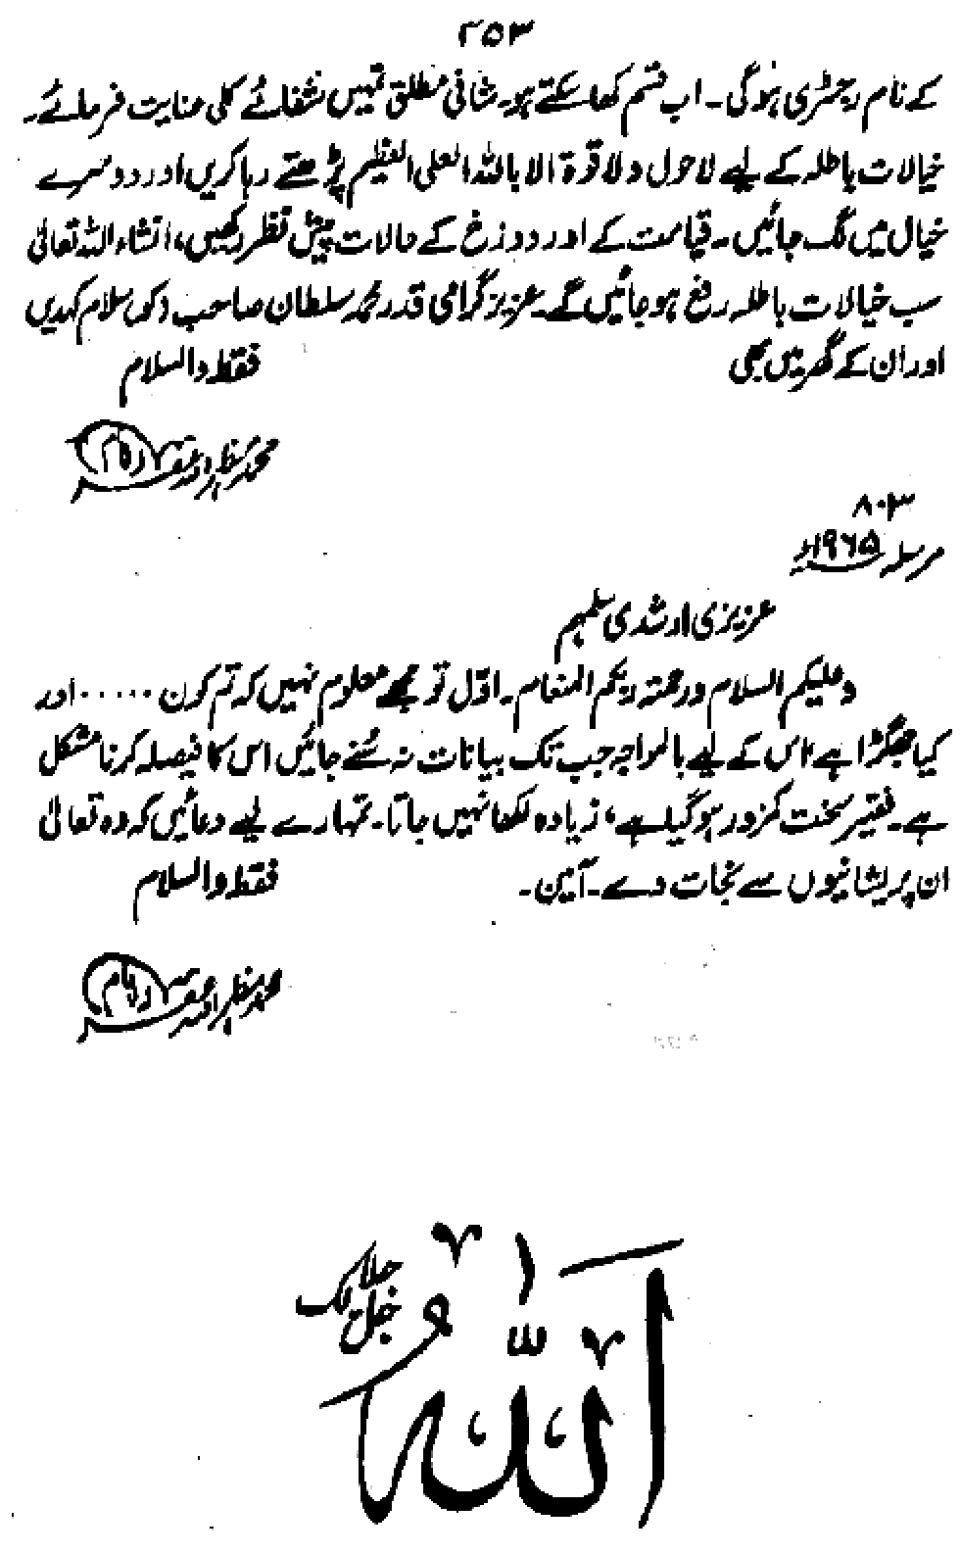 ۳۵۳
کے نام رجسٹری ہوگی۔ اب قسم کھا سکتے ہو۔ شافی مطلق تمہیں شفائے کلی عنایت فرمائے۔
خیالات باطلہ کے لیے لاحول ولا قوۃ الا باللہ العلی العظیم پڑھتے رہا کریں اور دوسرے
خیال میں لگ جائیں۔ قیامت کے اور دوزخ کے حالات پیش نظر رکھیں، انشاء اللہ تعالیٰ
سب خیالات باطلہ رفع ہو جائیں گے۔ عزیز گرامی قدر محمد سلطان صاحب کو سلام کہدیں
اور ان کے گھر میں بھی فقط والسلام
محمد مظہر اللہ غفرلہ
۸۰۳
مرسلہ ۱۹۶۵ء
عزیزی ارشدی سلمہم
وعلیکم السلام ورحمۃ ربکم المنعام۔ اوّل تو مجھے معلوم نہیں کہ تم کون ..... اور
کیا جھگڑا ہے، اس کے لیے بالمواجہ جب تک بیانات نہ سُنے جائیں اس کا فیصلہ کرنا مشکل
ہے۔ فقیر سخت کمزور ہو گیا ہے، زیادہ لکھا نہیں جاتا۔ تمہارے لیے دعائیں کہ وہ تعالیٰ
ان پریشانیوں سے نجات دے۔ آمین۔ فقط والسلام
محمد مظہر اللہ غفرلہ
اللہ
جل جلالک